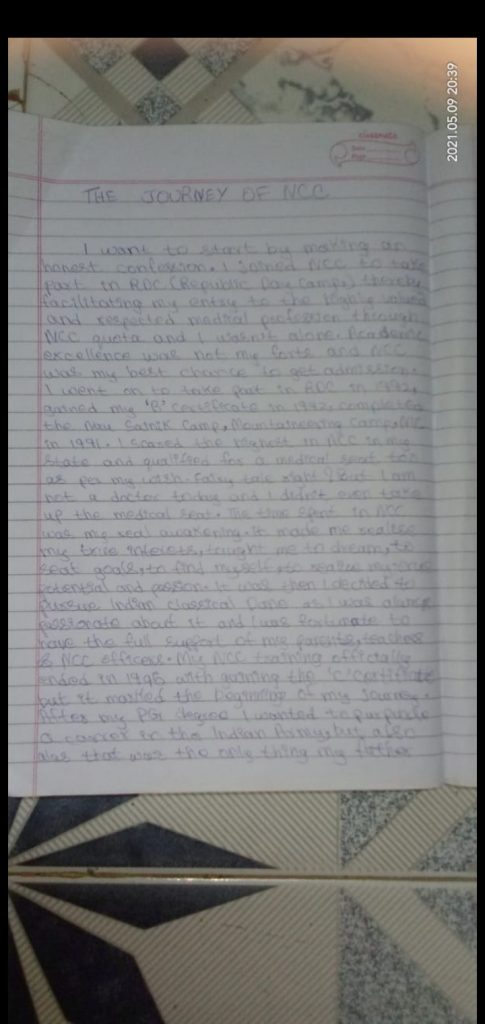 2021.05.09 20:39
classmate
Date
Page
THE JOURNEY OF NCC
I want to start by making an
honest confession. I Joined NCC to take
part in RDC (Republic Day Camp) thereby
facilitating my entry to the highly valued
and respected medical profession through
NCC quota and I wasn't alone. Academic
excellence was not my forte and NCC
was my best chance to get admission.
I went on to take part in RDC in 1992,
gained my 'B' certificate in 1992, completed
the Nau Sainik Camp, Mountaineering Camp,
in 1991. I scored the highest in NCC in my
State and qualified for a medical seat too
as per my wish. Fairy tale right? But I am
not a doctor today and I didn't even take
up the medical seat. The time spent in NCC
was my real awakening. It made me realise
my true interests, taught me to dream, to
seat goals, to find myself, to realise my
potential and passion. It was then I decided to
pursue Indian classical as I was always
passionate about it and I was fortunate to
have the full support of my parents, teachers
& NCC officers. My NCC training officially
ended in 1995 with gaining the 'C' certificate
but it marked the beginning of my Journey.
After my PG degree I wanted to
a career in the Indian Army, but
alas that was the only thing my father